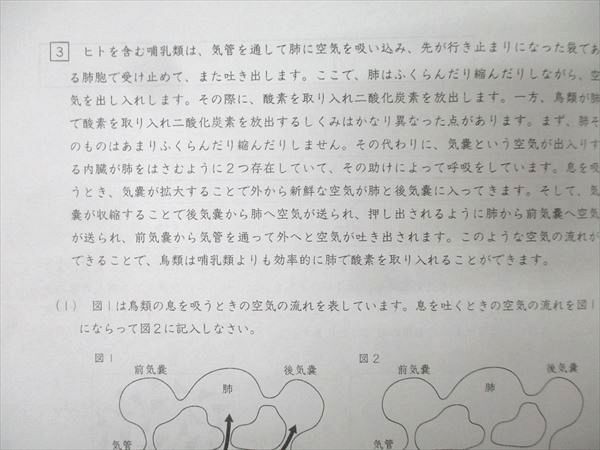 3 ヒトを含む哺乳類は、気管を通して肺に空気を吸い込み、先が行き止まりになった袋であ
る肺胞で受け止めて、また吐き出します。ここで、肺はふくらんだり縮んだりしながら、空
気を出し入れします。その際に、酸素を取り入れ二酸化炭素を放出します。一方、鳥類が肺
で酸素を取り入れ二酸化炭素を放出するしくみはかなり異なった点があります。まず、肺そ
のものはあまりふくらんだり縮んだりしません。その代わりに、気嚢という空気が出入りす
る内臓が肺をはさむように2つ存在していて、その助けによって呼吸をしています。息を吸
うとき、気嚢が拡大することで外から新鮮な空気が肺と後気嚢に入ってきます。そして、気
嚢が収縮することで後気嚢から肺へ空気が送られ、押し出されるように肺から前気嚢へ空気
が送られ、前気嚢から気管を通って外へと空気が吐き出されます。このような空気の流れが
できることで、鳥類は哺乳類よりも効率的に肺で酸素を取り入れることができます。
(1) 図1は鳥類の息を吸うときの空気の流れを表しています。息を吐くときの空気の流れを図1
にならって図2に記入しなさい。
図1
前気嚢
肺
後気嚢
気管
図2
前気嚢
肺
後気嚢
気管